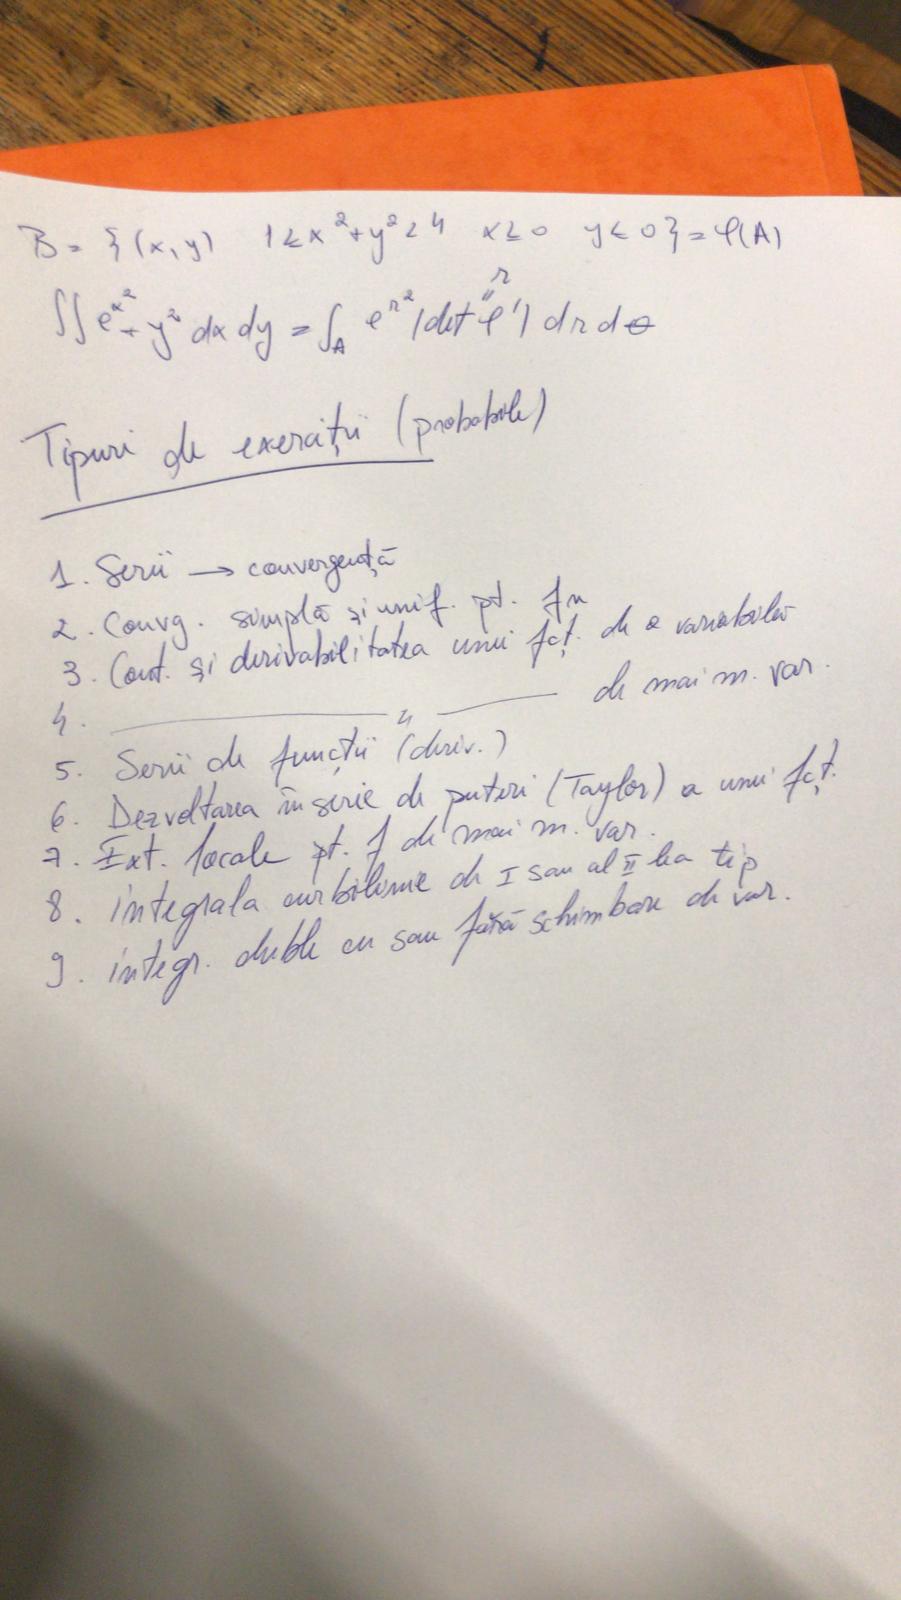 B = {(x, y) 1 ≤ x² + y² ≤ 4 x ≥ 0 y ≤ 0} = φ(A)
∬ e^x² + y² dx dy = ∫_A e^r² |det φ'| dr dθ
r
Tipuri de exerciții (probabile)
1. Serii → convergență
2. Convg. simplă și unif. pt. fn
3. Cont. și derivabilitatea unui fcț. de 2 variabile
4. ——— " ——— de mai m. var.
5. Serii de funcții (deriv.)
6. Dezvoltarea în serie de puteri (Taylor) a unui fcț.
7. Ext. locale pt. f de mai m. var.
8. integrala curbilinie de I sau al II lea tip
9. integr. duble cu sau fără schimbare de var.